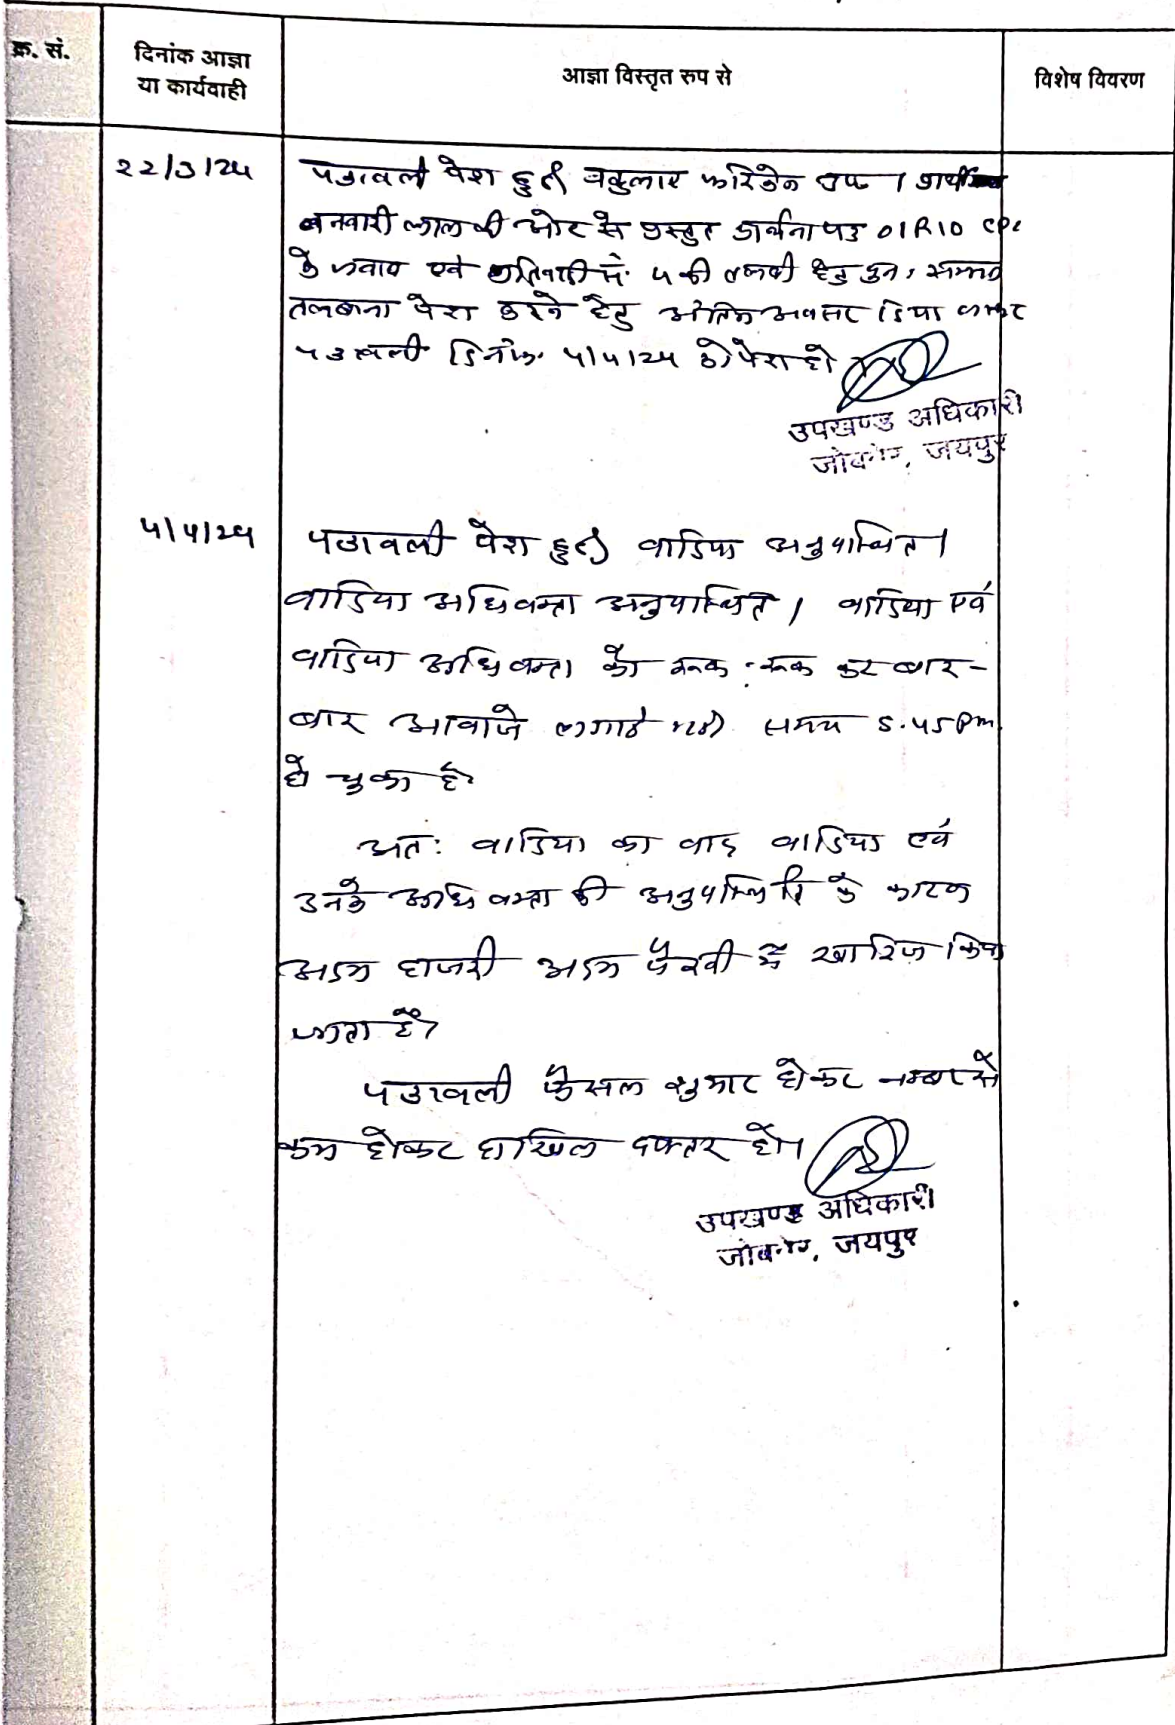 क्र. सं.
दिनांक आज्ञा
या कार्यवाही
आज्ञा विस्तृत रुप से
विशेष विवरण
22/3/24
पत्रावली पेश हुई वकुलाए फरिकेन उप । प्रार्थी
बनवारी लाल की ओर से प्रस्तुत प्रार्थना पत्र O1R10 CPC
के जवाब एवं प्रतिवादी सं. 4 की तलबी हेतु पुनः सम्मन
तलबाना पेश करने हेतु अंतिम अवसर दिया जाकर
पत्रावली दिनांक 4/4/24 को पेश हो
उपखण्ड अधिकारी
जोबनेर, जयपुर
4/4/24
पत्रावली पेश हुई वादिया अनुपस्थित।
वादिया अधिवक्ता अनुपस्थित। वादिया एवं
वादिया अधिवक्ता को रूक-रूक कर बार-
बार आवाजे लगाई गयी समय 5.45 Pm
हो चुका है
अतः वादिया का वाद वादिया एवं
उनके अधिवक्ता की अनुपस्थिति के कारण
अदम हाजरी अदम पैरवी में खारिज किया
जाता है।
पत्रावली फैसल शुमार होकर नम्बर से
कम होकर दाखिल दफ्तर हो।
उपखण्ड अधिकारी
जोबनेर, जयपुर